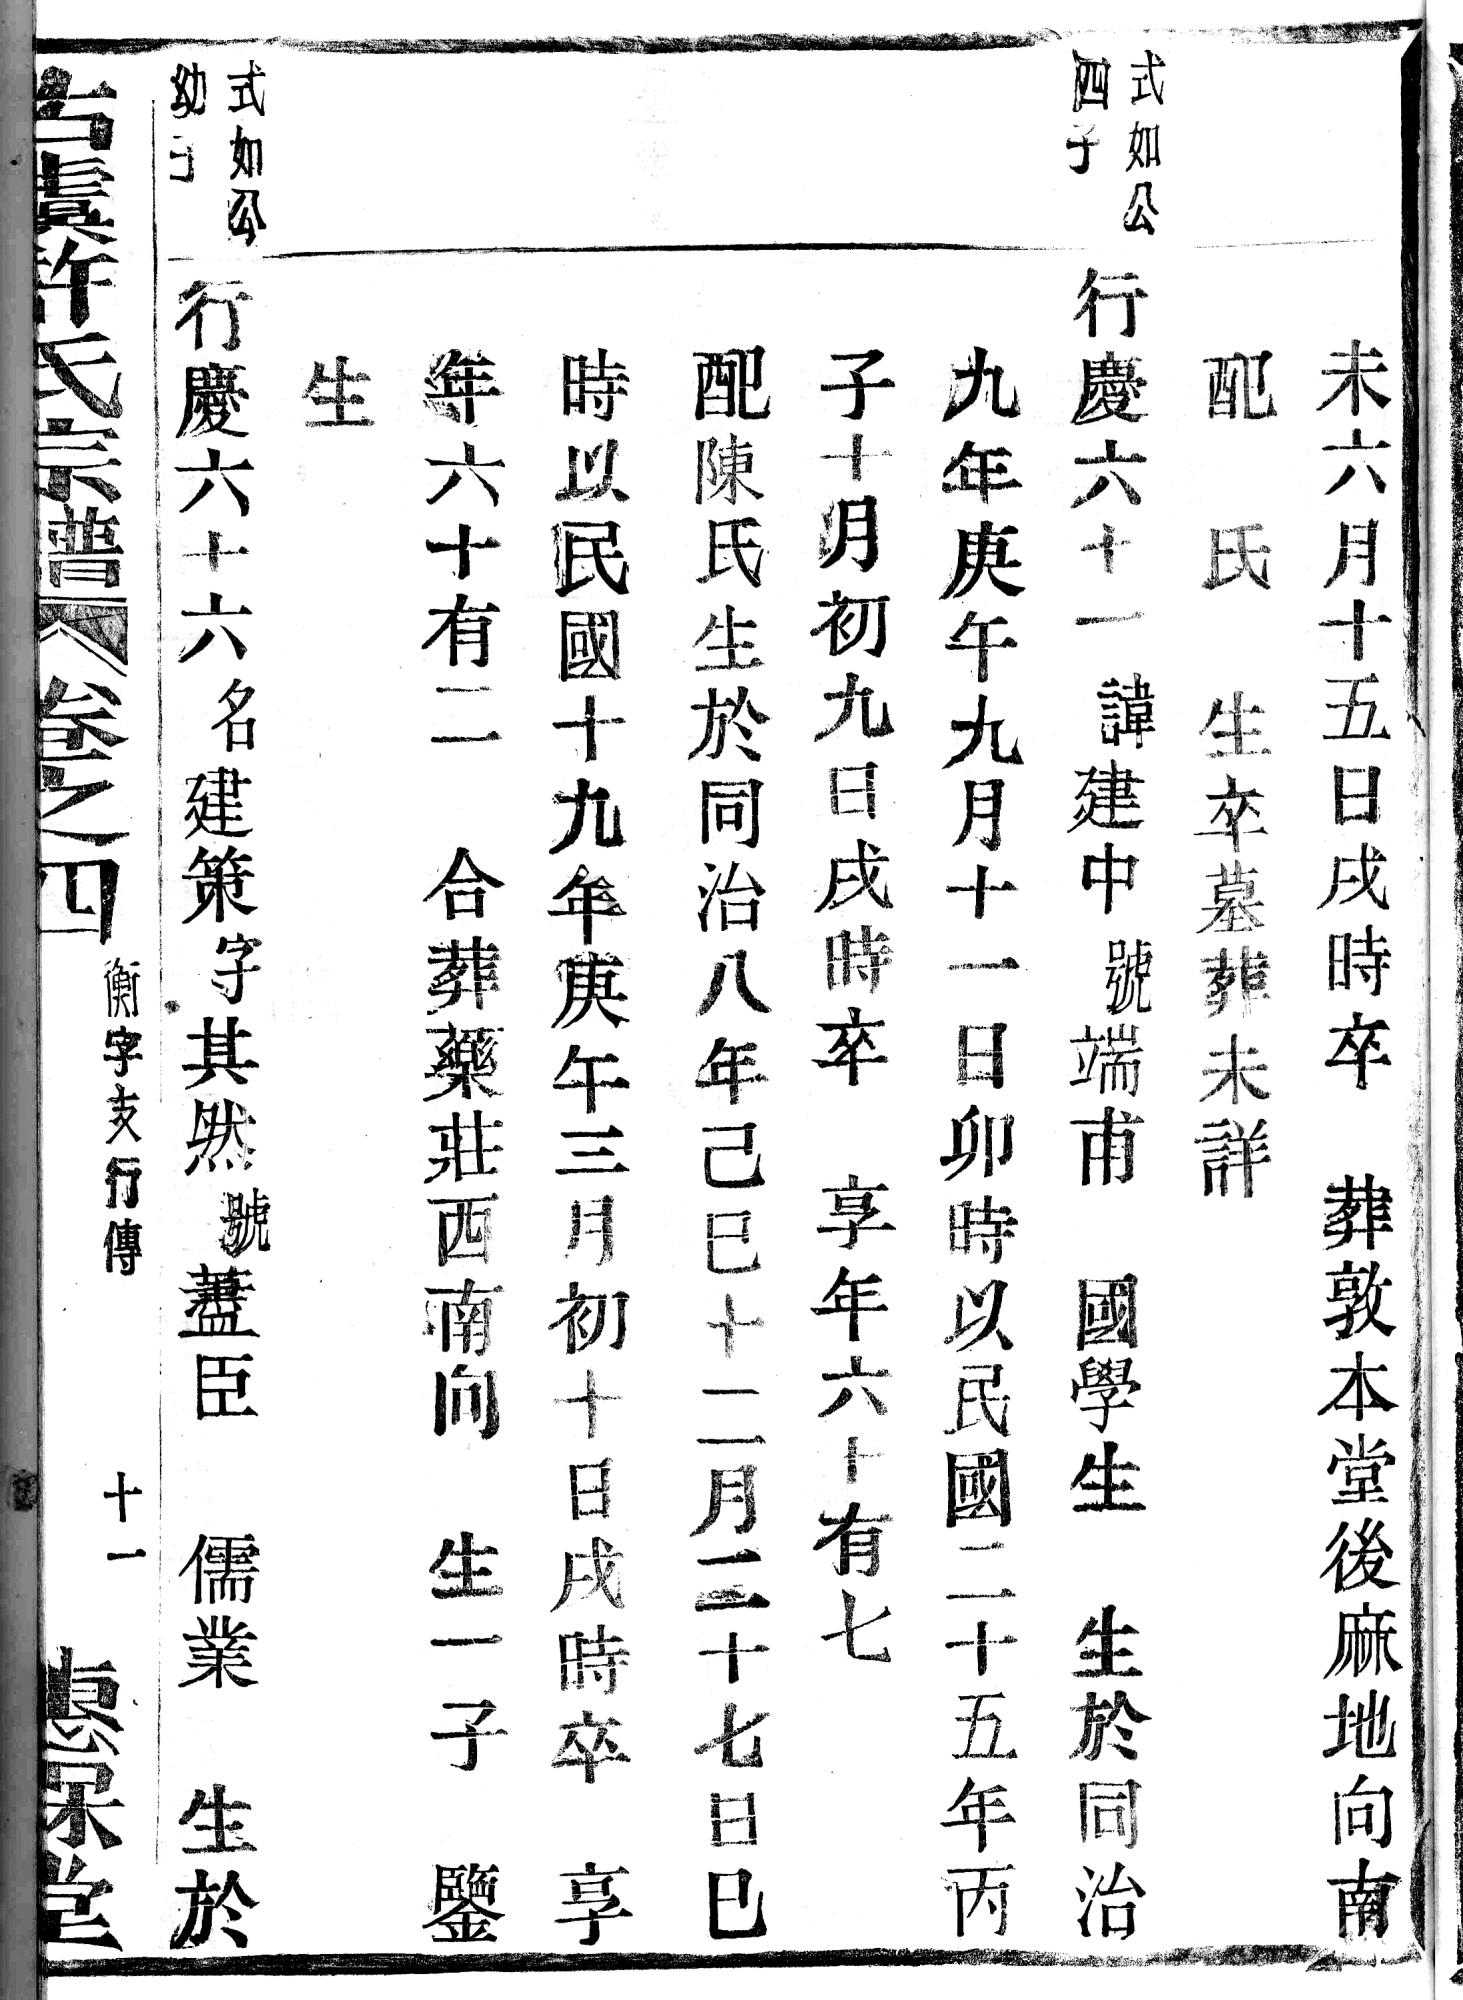 未六月十五日戌時卒　葬敦本堂後麻地向南
配　氏　生卒墓葬未詳
式如公
四子
行慶六十一諱建中號端甫　國學生　生於同治
九年庚午九月十一日卯時以民國二十五年丙
子十月初九日戌時卒　享年六十有七
配陳氏生於同治八年己巳十二月二十七日巳
時以民國十九年庚午三月初十日戌時卒　享
年六十有二　合葬藥莊西南向　生一子　鑒
生
式如公
幼子
行慶六十六名建策字其然號藎臣　儒業　生於
古虞許氏宗譜　卷之四　衡字支行傳　十一　惠保堂